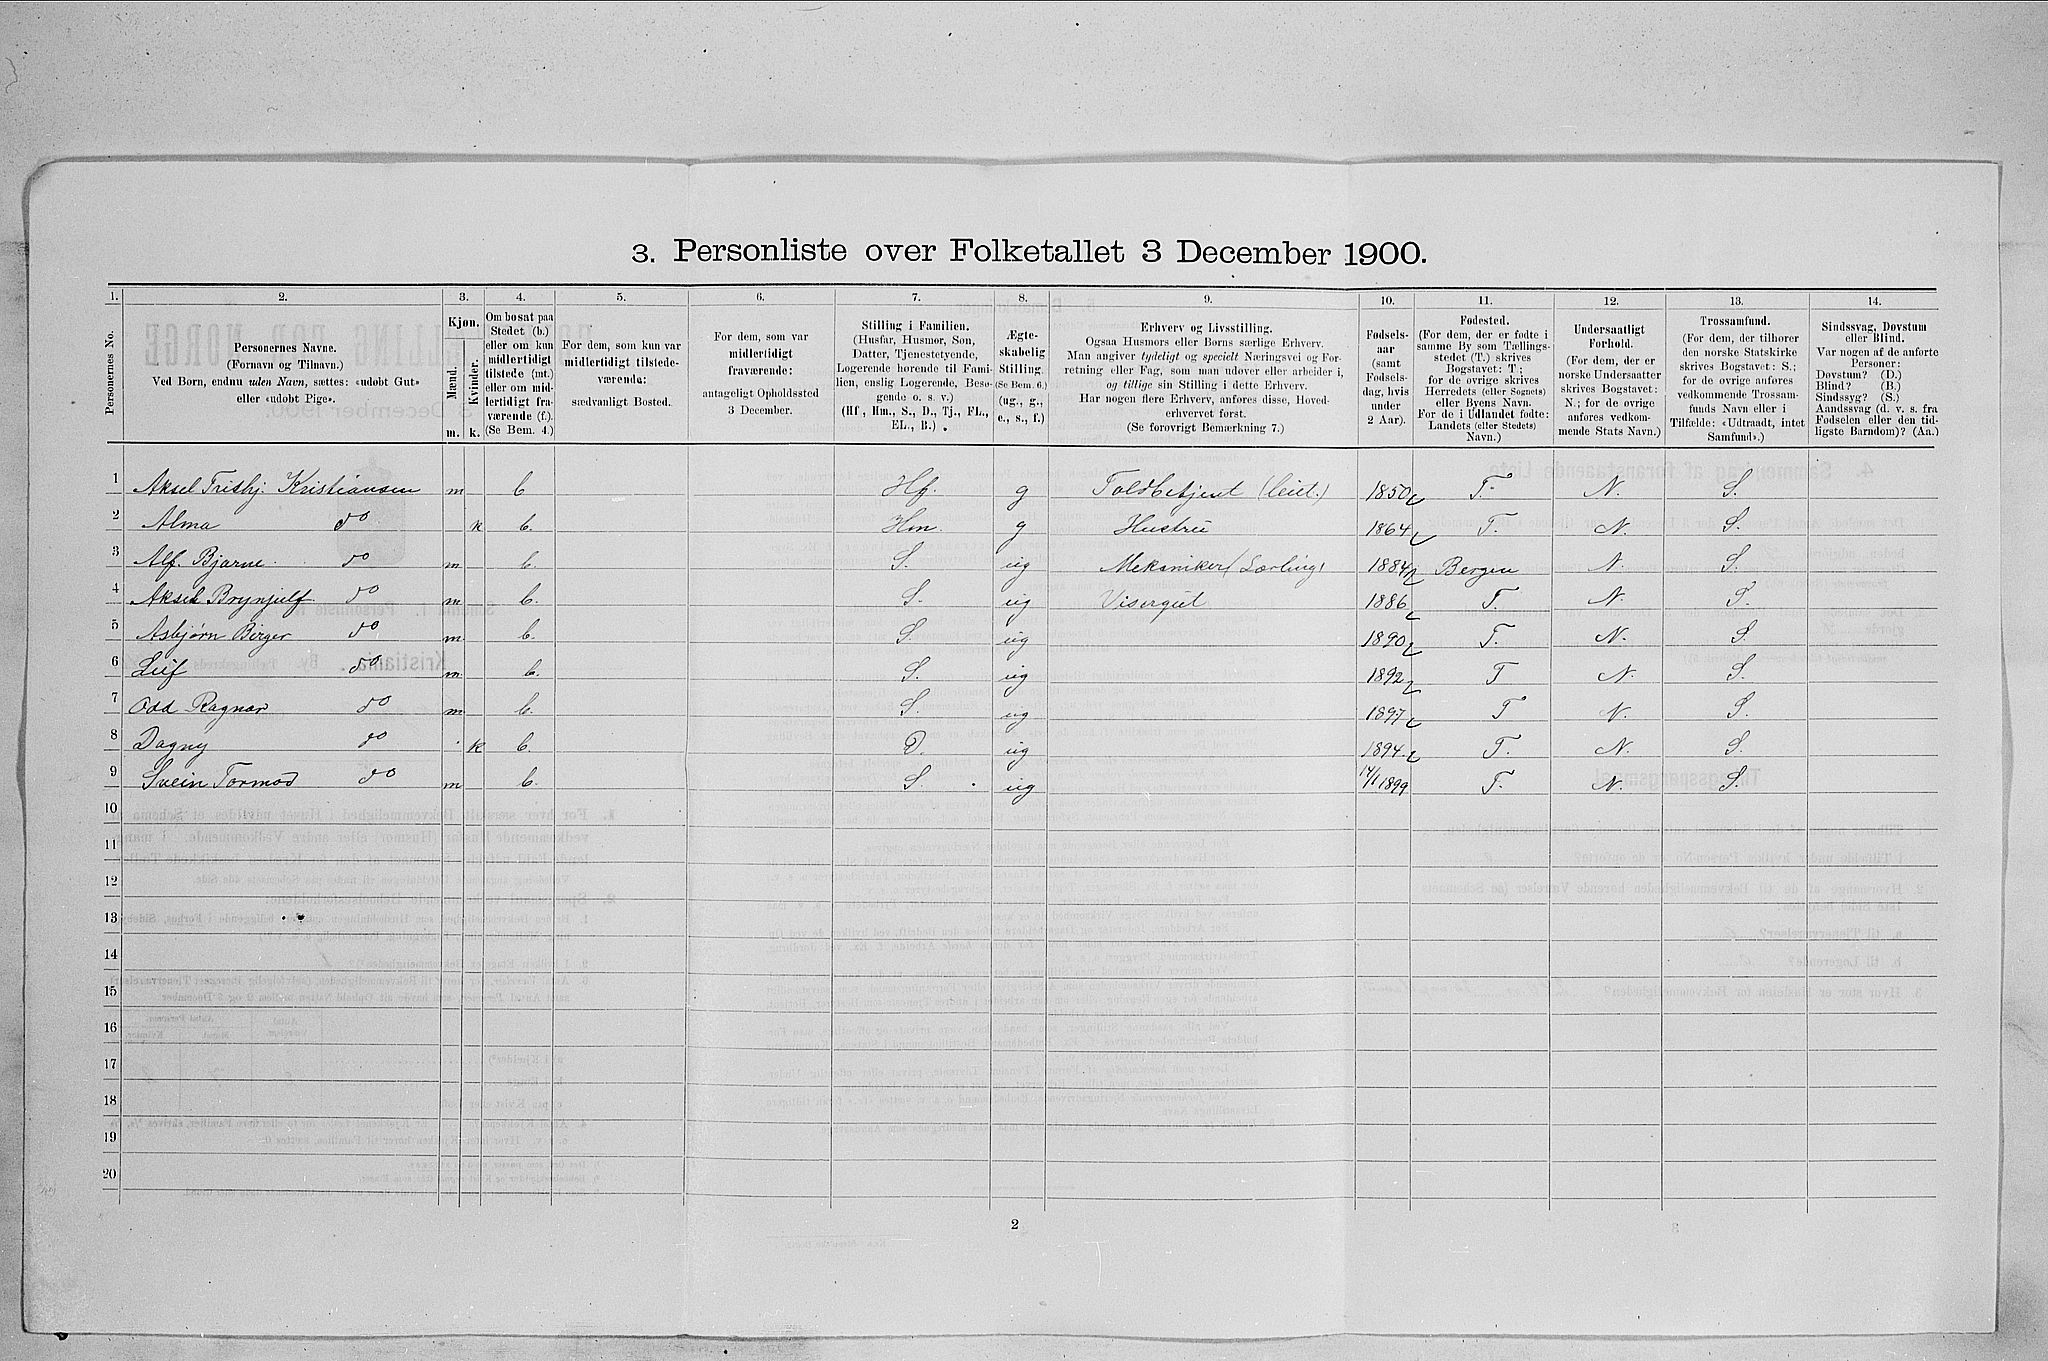 3. Personliste over Folketallet 3 December 1900.
1. 2. 3. 4. 5. 6. 7. 8. 9. 10. 11. 12. 13. 14.
Personernes No.
Personernes Navne.
(Fornavn og Tilnavn.)
Ved Børn, endnu uden Navn, sættes: «udøbt Gut»
eller «udøbt Pige».
Kjøn.
Mænd.
Kvinder.
m. k.
Om bosat paa
Stedet (b.)
eller om kun
midlertidigt
tilstede (mt.)
eller om mid-
lertidigt fra-
værende (f.).
(Se Bem. 4.)
For dem, som kun var
midlertidigt tilstede-
værende:
sædvanligt Bosted.
For dem, som var
midlertidigt
fraværende:
antageligt Opholdssted
3 December.
Stilling i Familien.
(Husfar, Husmor, Søn,
Datter, Tjenestetyende,
Logerende hørende til Fami-
lien, enslig Logerende, Besø-
gende o. s. v.)
(Hf., Hm., S., D., Tj., FL.,
EL., B.)
Ægte-
skabelig
Stilling.
(Se Bem. 6.)
(ug., g.,
e., s., f.)
Erhverv og Livsstilling.
Ogsaa Husmors eller Børns særlige Erhverv.
Man angiver tydeligt og specielt Næringsvei og For-
retning eller Fag, som man udøver eller arbeider i,
og tillige sin Stilling i dette Erhverv.
Har nogen flere Erhverv, anføres disse, Hoved-
erhvervet først.
(Se forøvrigt Bemærkning 7.)
Fødsels-
aar
(samt
Fødsels-
dag, hvis
under
2 Aar).
Fødested.
(For dem, der er fødte i
samme By som Tællings-
stedet (T.) skrives
Bogstavet: T;
for de øvrige skrives
Herredets (eller Sognets)
eller Byens Navn.
For de i Udlandet fødte:
Landets (eller Stedets)
Navn.)
Undersaatligt
Forhold.
(For dem, der er
norske Undersaatter
skrives Bogstavet:
N.; for de øvrige
anføres vedkom-
mende Stats Navn.)
Trossamfund.
(For dem, der tilhører
den norske Statskirke
skrives Bogstavet: S.;
for de øvrige anføres
vedkommende Trossam-
funds Navn eller i
Tilfælde: «Udtraadt, intet
Samfund».)
Sindssvag, Døvstum
eller Blind.
Var nogen af de anførte
Personer:
Døvstum? (D.)
Blind? (B.)
Sindssyg? (S.)
Aandssvag (d. v. s. fra
Fødselen eller den tid-
ligste Barndom)? (Aa.)
1 Aksel Frithj. Kristiansen m b Hf. g Toldbetjent 1850 T. N. S.
2 Alma do k b. Hm. g Hustru 1864 T. N. S.
3 Alf. Bjarne. do m b. S. ug Mekaniker (Lærling) 1884 Bergen N. S.
4 Aksel Brynjulf do m b. S. ug Visergut 1886 T. N. S.
5 Asbjørn Birger do m. b. S. ug 1890 T. N. S.
6 Leif do m. b. S. ug 1892 T N. S.
7 Odd Ragnar do m b. S. ug 1897 T N. S.
8 Dagny do k b. D. ug 1894. T. N. S.
9 Svein Tormod do m b. S. ug 14/1 1899 T. N. S.
10
11
12
13
14
15
16
17
18
19
20
2